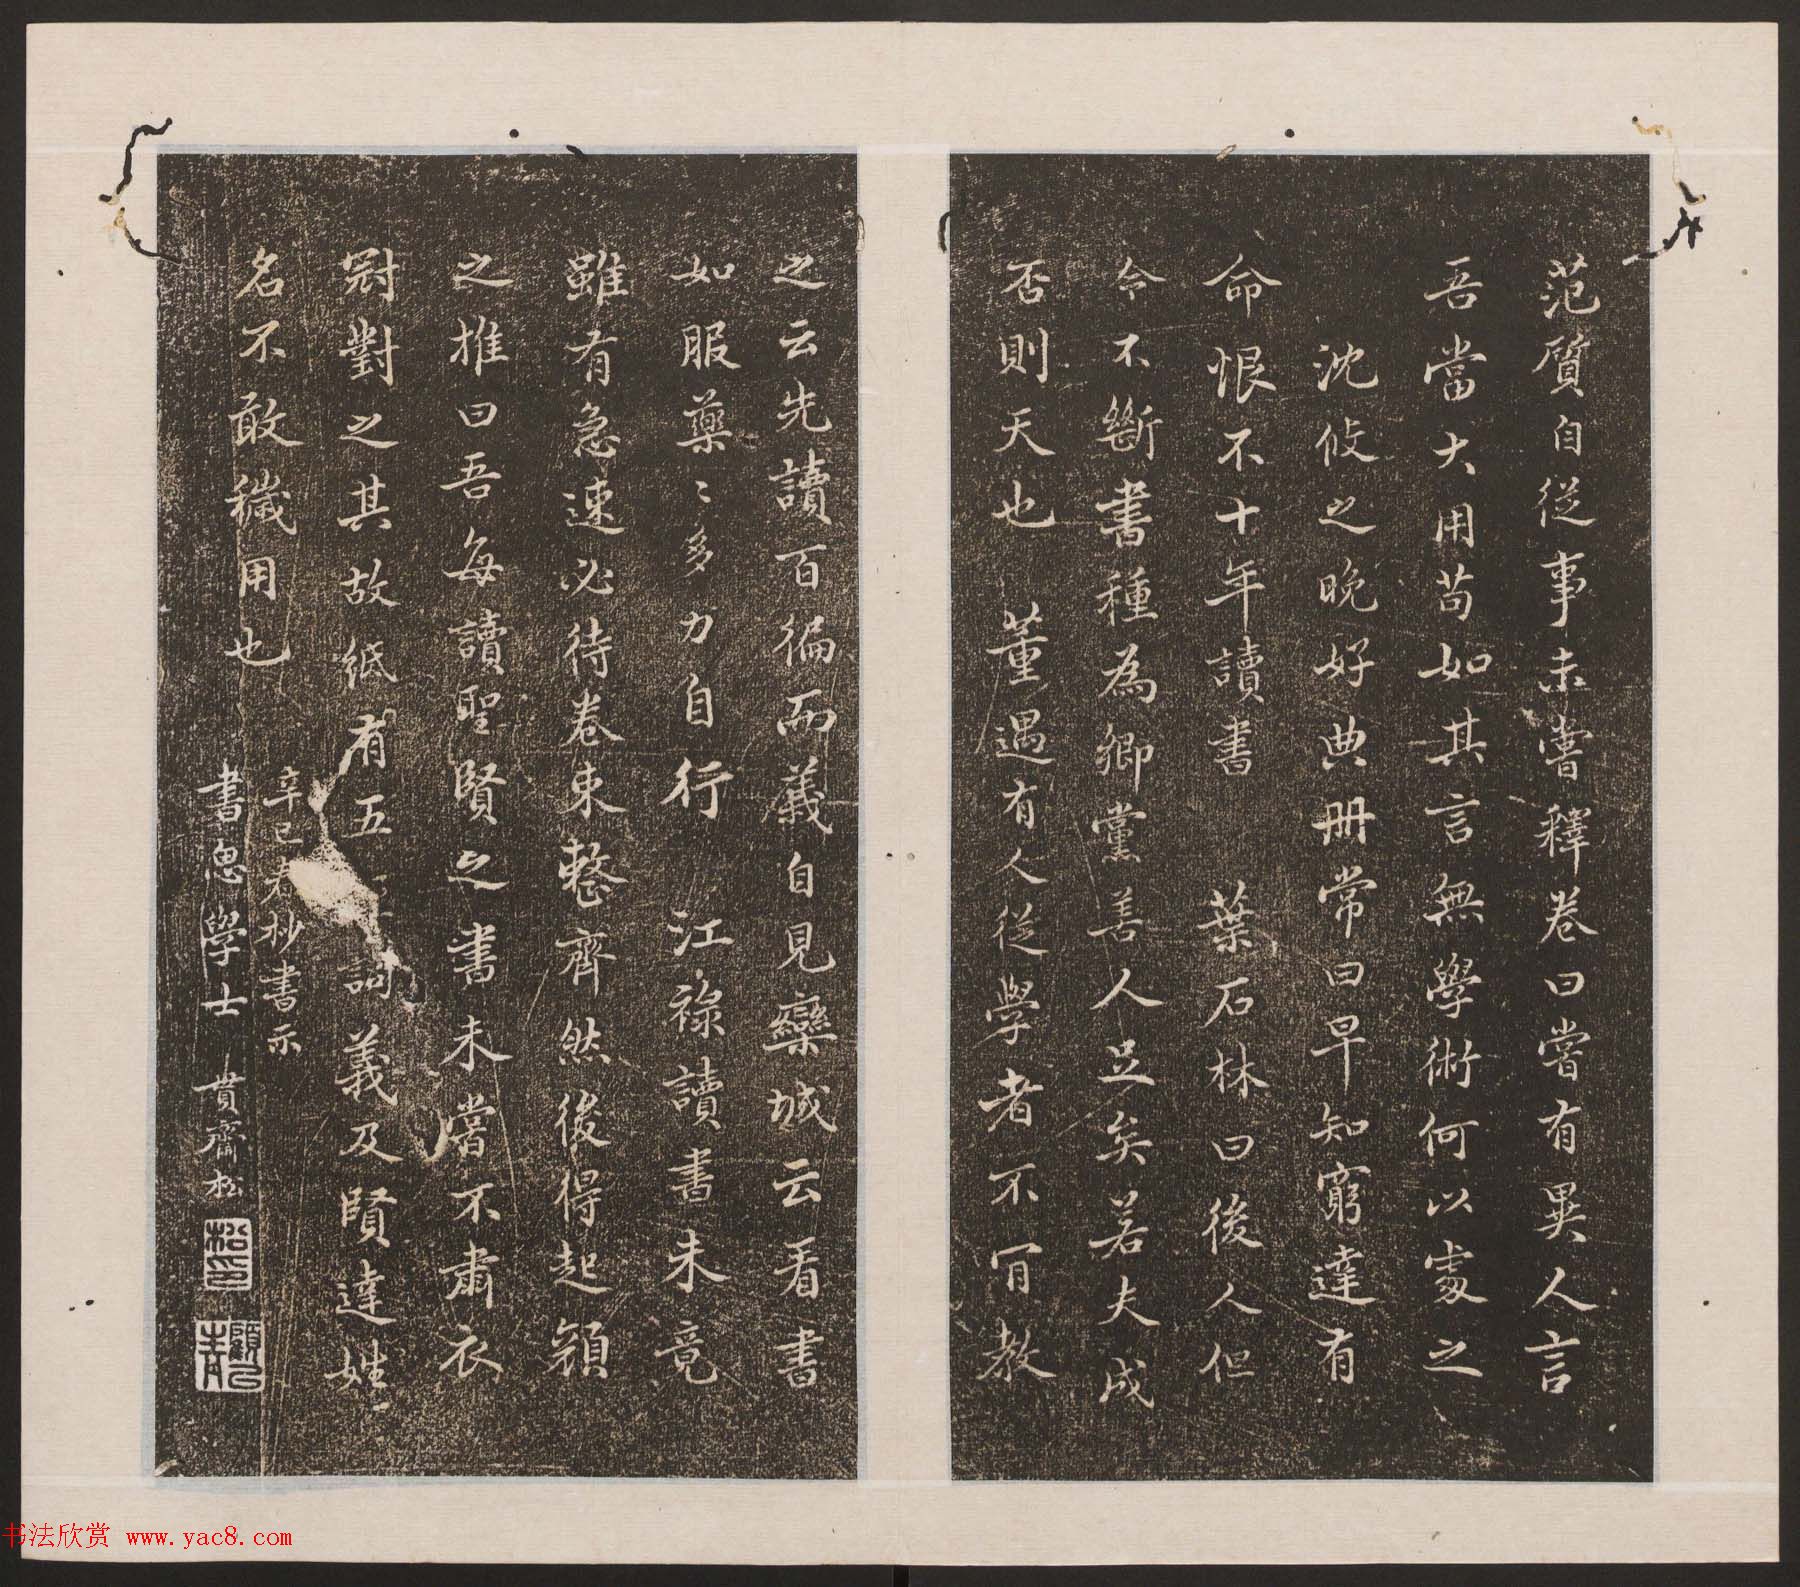 范質自從事未嘗釋卷曰嘗有異人言
吾當大用苟如其言無學術何以處之
沈攸之晚好典冊常曰早知窮達有
命恨不十年讀書 葉石林曰後人但
令不斷書種為鄉黨善人足矣若夫成
否則天也 董遇有人從學者不肎教
之云先讀百徧而義自見欒城云看書
如服藥〻多力自行 江祿讀書未竟
雖有急速必待卷束整齊然後得起顏
之推曰吾每讀聖賢之書未嘗不肅衣
冠對之其故紙有五詞義及賢達姓
名不敢穢用也
辛巳春杪書示
書思學士 貫齋松
松印
書法欣赏 www.yac8.com